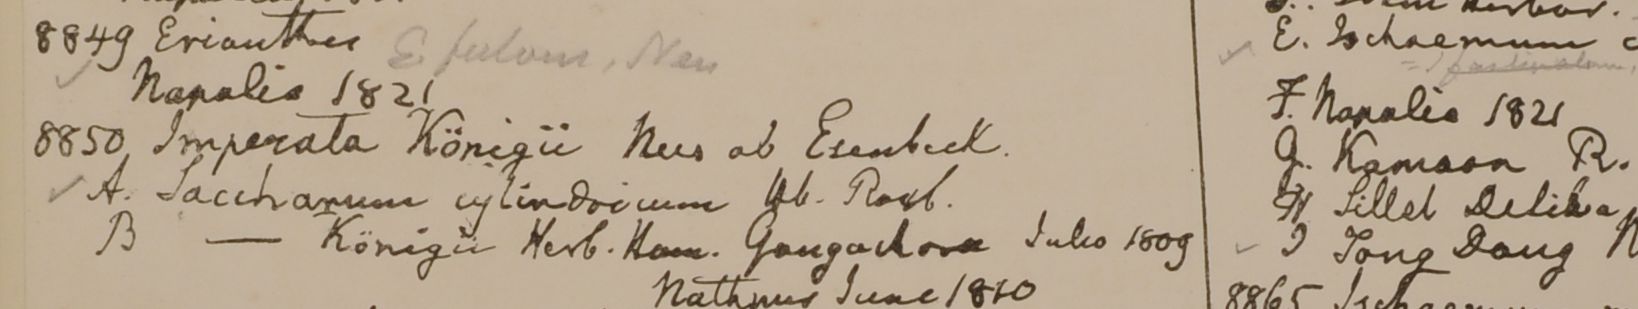 8849 Erianthus E fulvus, Nees
Napalia 1821
8850 Imperata Königii Nees ab Esenbeck.
A. Saccharum cylindricum Hb. Roxb.
B — Königii Herb. Ham. Gongachora Julio 1809
Nathpur June 1810
E. Ischaemum
F. Napalia 1821
G. Kamaon R.
H Sillet Delika
I Tong Dong
8865 Ischaemum